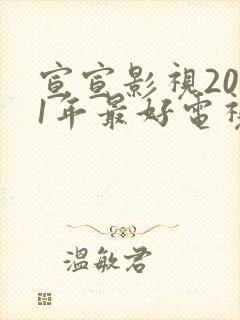 宣宣影視20
1年最好電視
溫敏君